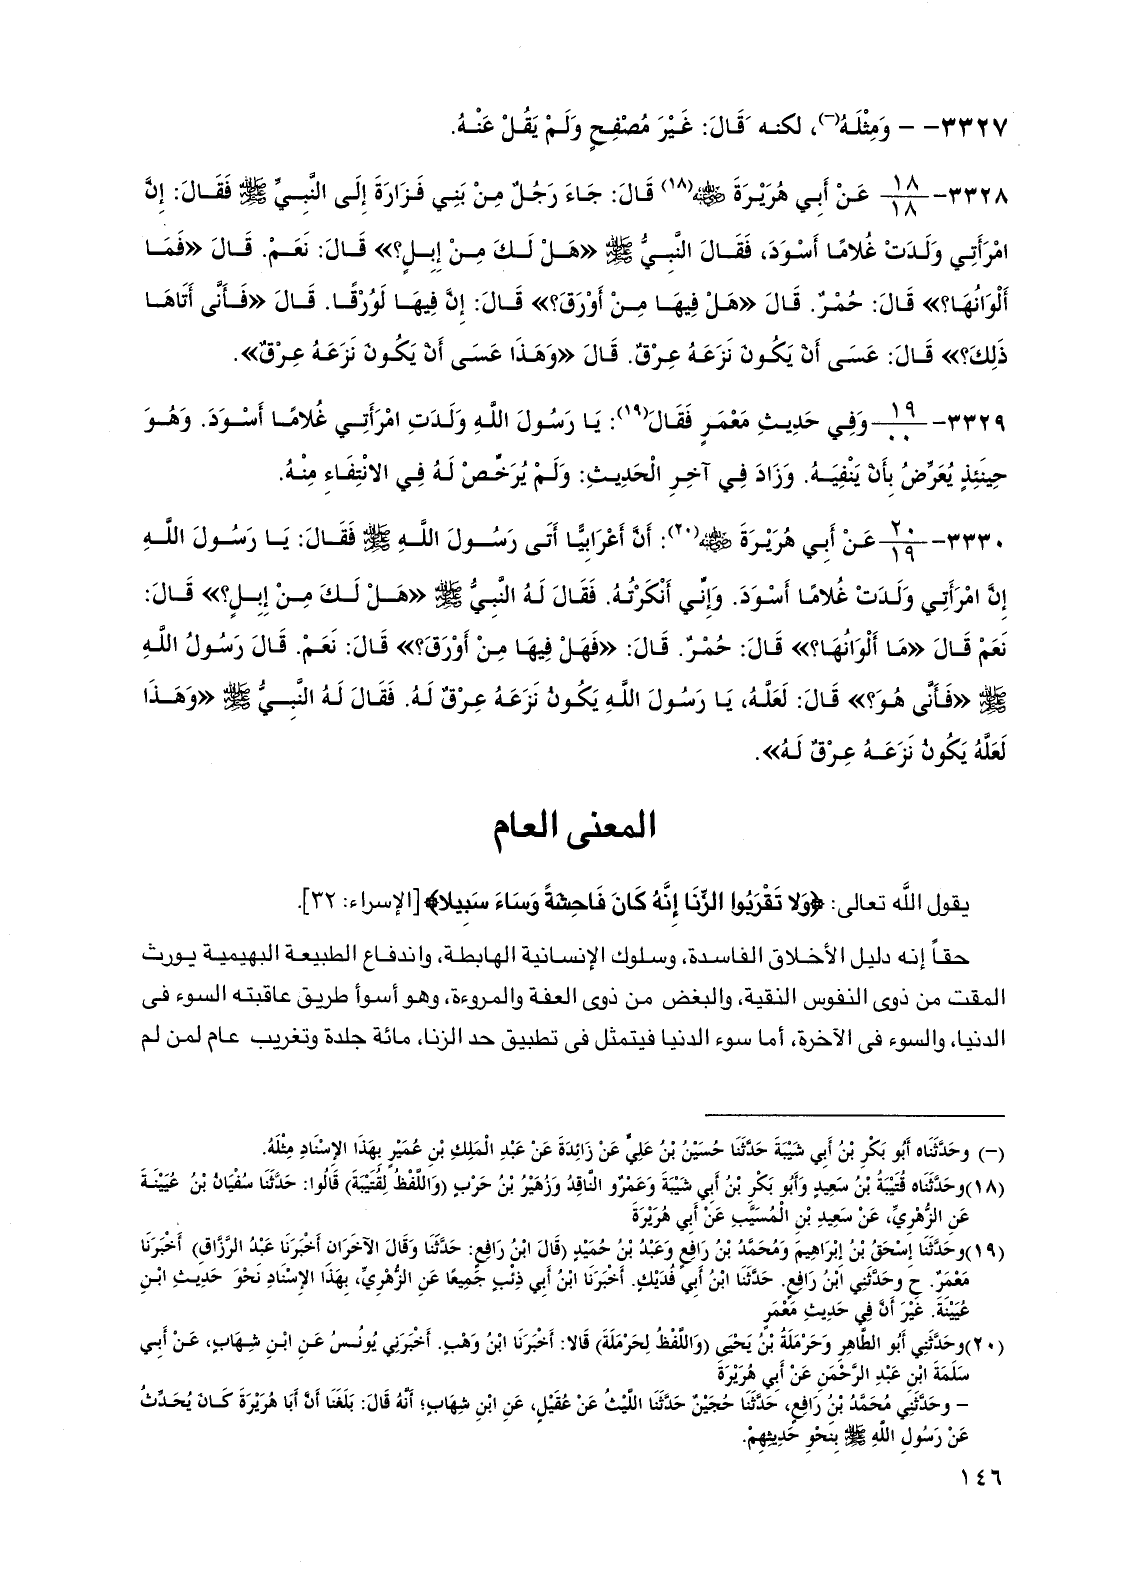 ٣٣٢٧- - وَمِثْلَهُ(-)، لكنه قَالَ: غَيْرَ مُصْفِحٍ وَلَمْ يَقُلْ عَنْهُ.
٣٣٢٨- ١٨/١٨ عَنْ أَبِي هُرَيْرَةَ ﷺ(١٨) قَالَ: جَاءَ رَجُلٌ مِنْ بَنِي فَزَارَةَ إِلَى النَّبِيِّ ﷺ فَقَالَ: إِنَّ
امْرَأَتِي وَلَدَتْ غُلامًا أَسْوَدَ، فَقَالَ النَّبِيُّ ﷺ «هَلْ لَكَ مِنْ إِبِلٍ؟» قَالَ: نَعَمْ. قَالَ «فَمَا
أَلْوَانُهَا؟» قَالَ: حُمْرٌ. قَالَ «هَلْ فِيهَا مِنْ أَوْرَقَ؟» قَالَ: إِنَّ فِيهَا لَوُرْقًا. قَالَ «فَأَنَّى أَتَاهَا
ذَلِكَ؟» قَالَ: عَسَى أَنْ يَكُونَ نَزَعَهُ عِرْقٌ. قَالَ «وَهَذَا عَسَى أَنْ يَكُونَ نَزَعَهُ عِرْقٌ».
٣٣٢٩- ١٩/٠٠ وَفِي حَدِيثِ مَعْمَرٍ فَقَالَ(١٩): يَا رَسُولَ اللَّهِ وَلَدَتِ امْرَأَتِي غُلامًا أَسْوَدَ. وَهُوَ
حِينَئِذٍ يُعَرِّضُ بِأَنْ يَنْفِيَهُ. وَزَادَ فِي آخِرِ الْحَدِيثِ: وَلَمْ يُرَخِّصْ لَهُ فِي الانْتِفَاءِ مِنْهُ.
٣٣٣٠- ٢٠/١٩ عَنْ أَبِي هُرَيْرَةَ ﷺ(٢٠): أَنَّ أَعْرَابِيًّا أَتَى رَسُولَ اللَّهِ ﷺ فَقَالَ: يَا رَسُولَ اللَّهِ
إِنَّ امْرَأَتِي وَلَدَتْ غُلامًا أَسْوَدَ. وَإِنِّي أَنْكَرْتُهُ. فَقَالَ لَهُ النَّبِيُّ ﷺ «هَلْ لَكَ مِنْ إِبِلٍ؟» قَالَ:
نَعَمْ قَالَ «مَا أَلْوَانُهَا؟» قَالَ: حُمْرٌ. قَالَ: «فَهَلْ فِيهَا مِنْ أَوْرَقَ؟» قَالَ: نَعَمْ. قَالَ رَسُولُ اللَّهِ
ﷺ «فَأَنَّى هُوَ؟» قَالَ: لَعَلَّهُ، يَا رَسُولَ اللَّهِ يَكُونُ نَزَعَهُ عِرْقٌ لَهُ. فَقَالَ لَهُ النَّبِيُّ ﷺ «وَهَذَا
لَعَلَّهُ يَكُونُ نَزَعَهُ عِرْقٌ لَهُ».
المعنى العام
يقول اللَّه تعالى: ﴿وَلا تَقْرَبُوا الزِّنَا إِنَّهُ كَانَ فَاحِشَةً وَسَاءَ سَبِيلا﴾ [الإسراء: ٣٢].
حقاً إنه دليل الأخلاق الفاسدة، وسلوك الإنسانية الهابطة، واندفاع الطبيعة البهيمية يورث
المقت من ذوى النفوس النقية، والبغض من ذوى العفة والمروءة، وهو أسوأ طريق عاقبته السوء فى
الدنيا، والسوء فى الآخرة، أما سوء الدنيا فيتمثل فى تطبيق حد الزنا، مائة جلدة وتغريب عام لمن لم
(-) وحَدَّثَنَاه أَبُو بَكْرِ بْنُ أَبِي شَيْبَةَ حَدَّثَنَا حُسَيْنُ بْنُ عَلِيٍّ عَنْ زَائِدَةَ عَنْ عَبْدِ الْمَلِكِ بْنِ عُمَيْرٍ بِهَذَا الإِسْنَادِ مِثْلَهُ.
(١٨)وحَدَّثَنَاه قُتَيْبَةُ بْنُ سَعِيدٍ وَأَبُو بَكْرِ بْنُ أَبِي شَيْبَةَ وَعَمْرٌو النَّاقِدُ وَزُهَيْرُ بْنُ حَرْبٍ (وَاللَّفْظُ لِقُتَيْبَةَ) قَالُوا: حَدَّثَنَا سُفْيَانُ بْنُ عُيَيْنَةَ
عَنِ الزُّهْرِيِّ، عَنْ سَعِيدِ بْنِ الْمُسَيَّبِ عَنْ أَبِي هُرَيْرَةَ
(١٩)وحَدَّثَنَا إِسْحَقُ بْنُ إِبْرَاهِيمَ وَمُحَمَّدُ بْنُ رَافِعٍ وَعَبْدُ بْنُ حُمَيْدٍ (قَالَ ابْنُ رَافِعٍ: حَدَّثَنَا وَقَالَ الآخَرَانِ أَخْبَرَنَا عَبْدُ الرَّزَّاقِ) أَخْبَرَنَا
مَعْمَرٌ. ح وحَدَّثَنِي ابْنُ رَافِعٍ. حَدَّثَنَا ابْنُ أَبِي فُدَيْكٍ. أَخْبَرَنَا ابْنُ أَبِي ذِئْبٍ جَمِيعًا عَنِ الزُّهْرِيِّ، بِهَذَا الإِسْنَادِ نَحْوَ حَدِيثِ ابْنِ
عُيَيْنَةَ. غَيْرَ أَنَّ فِي حَدِيثِ مَعْمَرٍ
(٢٠)وحَدَّثَنِي أَبُو الطَّاهِرِ وَحَرْمَلَةُ بْنُ يَحْيَى (وَاللَّفْظُ لِحَرْمَلَةَ) قَالا: أَخْبَرَنَا ابْنُ وَهْبٍ. أَخْبَرَنِي يُونُسُ عَنِ ابْنِ شِهَابٍ، عَنْ أَبِي
سَلَمَةَ ابْنِ عَبْدِ الرَّحْمَنِ عَنْ أَبِي هُرَيْرَةَ
- وحَدَّثَنِي مُحَمَّدُ بْنُ رَافِعٍ، حَدَّثَنَا حُجَيْنٌ حَدَّثَنَا اللَّيْثُ عَنْ عُقَيْلٍ، عَنِ ابْنِ شِهَابٍ؛ أَنَّهُ قَالَ: بَلَغَنَا أَنَّ أَبَا هُرَيْرَةَ كَانَ يُحَدِّثُ
عَنْ رَسُولِ اللَّهِ ﷺ بِنَحْوِ حَدِيثِهِمْ.
١٤٦